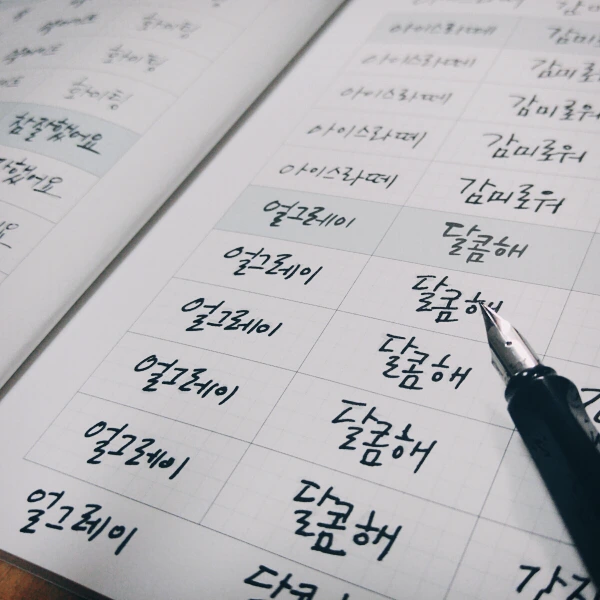 화이팅
화이팅
화이팅
참 잘했어요
잘했어요
요
아이스라떼 감미
아이스라떼 감미로
아이스라떼 감미로워
아이스라떼 감미로워
아이스라떼 감미로워
얼그레이 달콤해
얼그레이 달콤해
얼그레이 달콤해
얼그레이 달콤해
얼그레이 달콤해
얼그레이